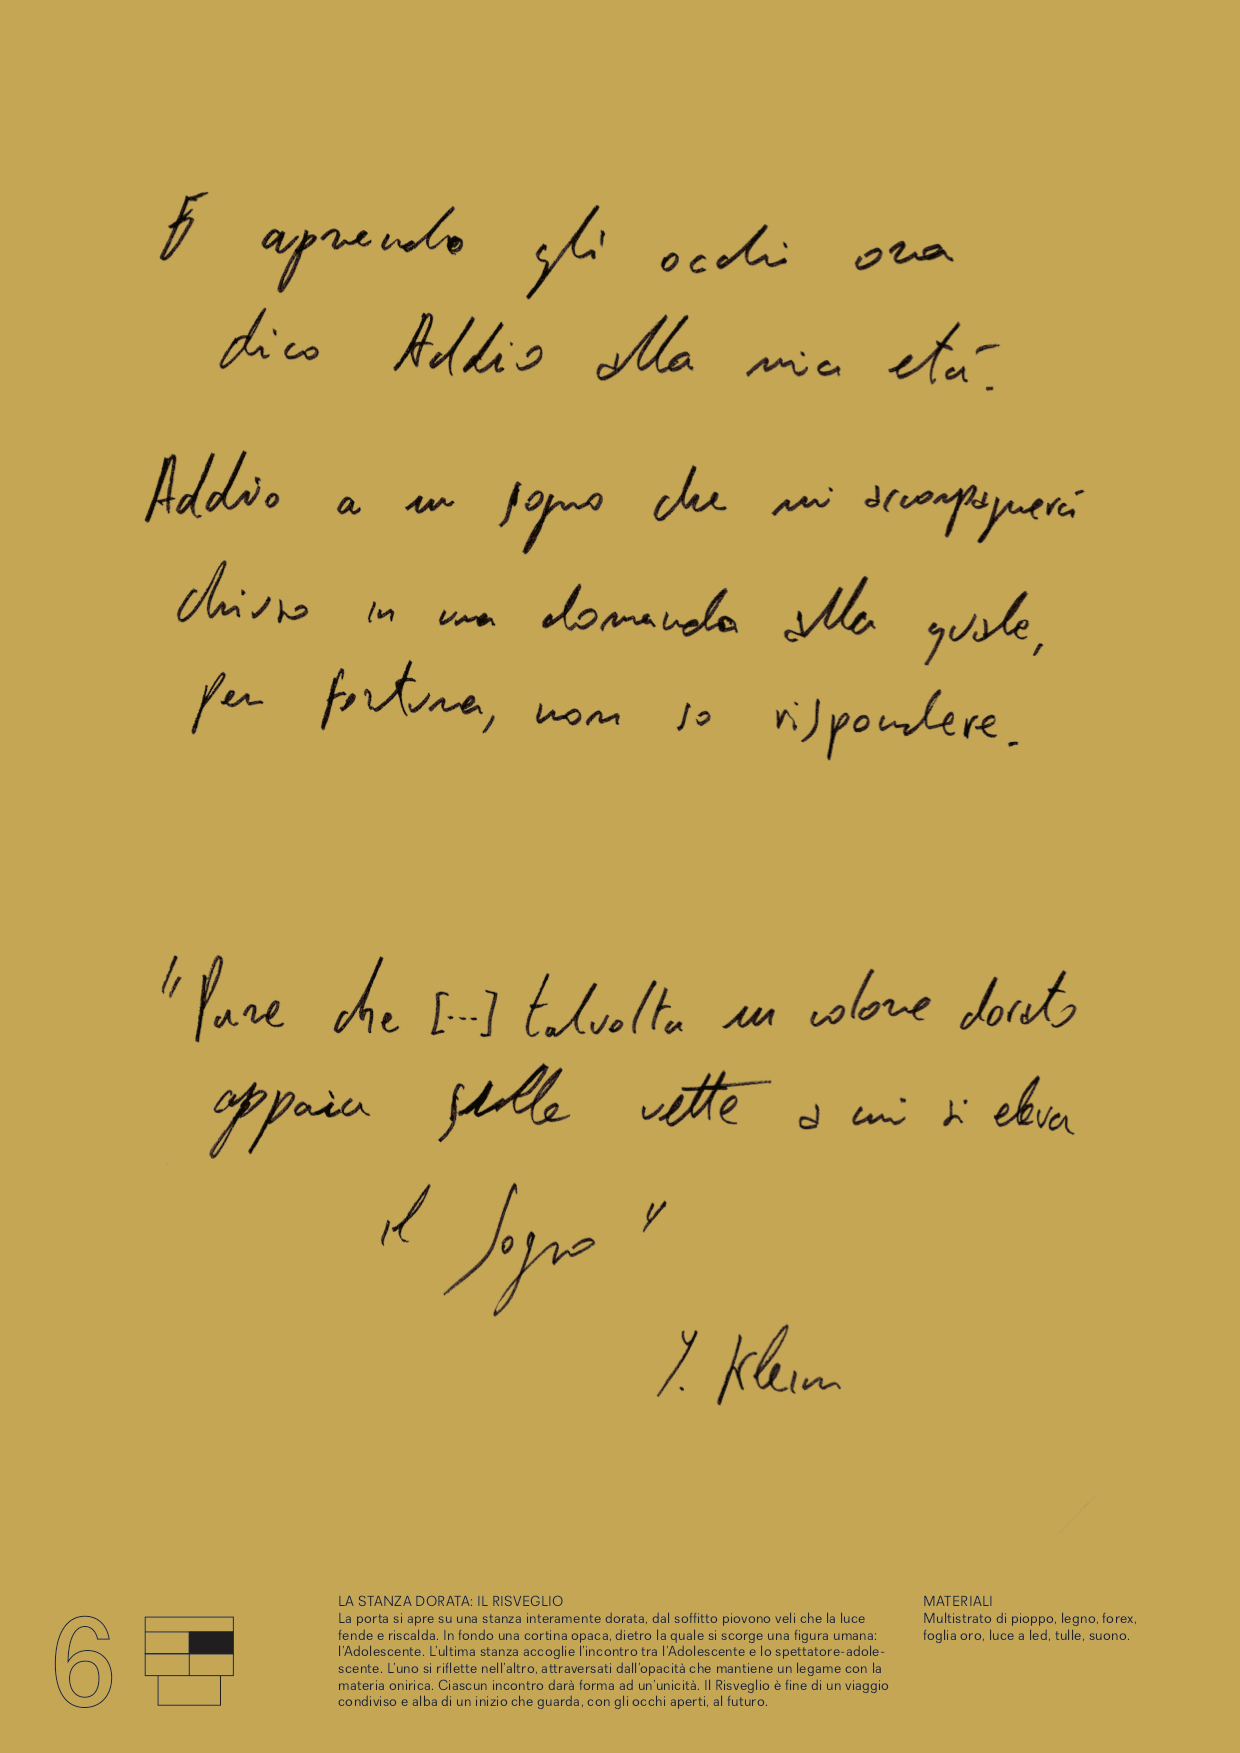 E aprendo gli occhi ora
dico Addio alla mia età.
Addio a un sogno che mi accompagnerà
chiuso in una domanda alla quale,
per fortuna, non so rispondere.
"Pare che [...] talvolta un colore dorato
appaia sulle vette a cui si eleva
il sogno"
Y. Klein
6
LA STANZA DORATA: IL RISVEGLIO
La porta si apre su una stanza interamente dorata, dal soffitto piovono veli che la luce
fende e riscalda. In fondo una cortina opaca, dietro la quale si scorge una figura umana:
l'Adolescente. L'ultima stanza accoglie l'incontro tra l'Adolescente e lo spettatore-adole-
scente. L'uno si riflette nell'altro, attraversati dall'opacità che mantiene un legame con la
materia onirica. Ciascun incontro darà forma ad un'unicità. Il Risveglio è fine di un viaggio
condiviso e alba di un inizio che guarda, con gli occhi aperti, al futuro.
MATERIALI
Multistrato di pioppo, legno, forex,
foglia oro, luce a led, tulle, suono.